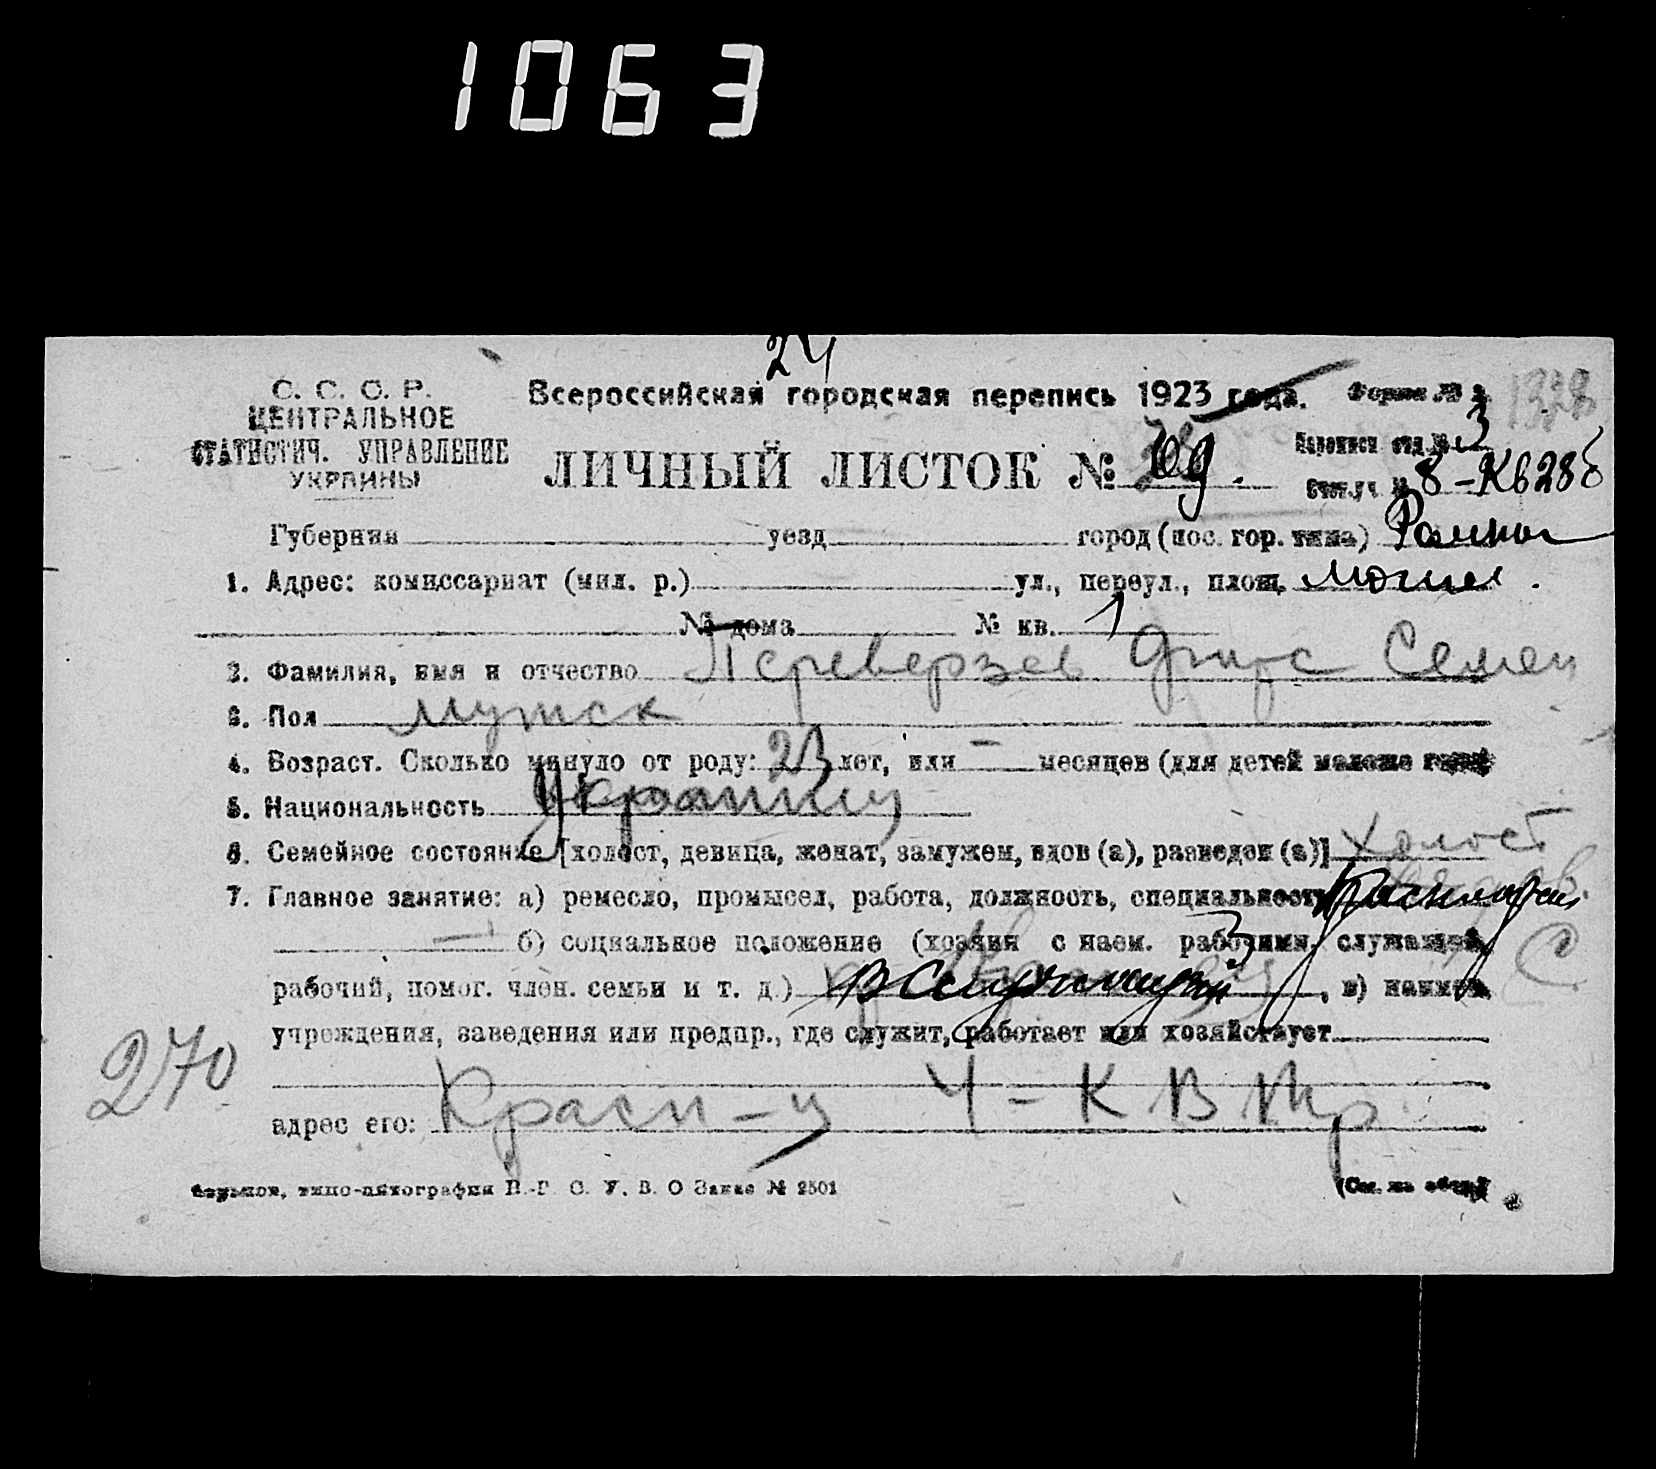 1063
24
С. С. С. Р. Всероссийская городская перепись 1923 года. Форма №
ЦЕНТРАЛЬНОЕ
СТАТИСТИЧ. УПРАВЛЕНИЕ
УКРАИНЫ
ЛИЧНЫЙ ЛИСТОК №
3
8-Кв28б
Губерния уезд город (пос. гор. типа)
1. Адрес: комиссариат (мил. р.) ул., переул., площ.
№ дома № кв. 1
2. Фамилия, имя и отчество Переверзев Семен
3. Пол мужск
4. Возраст. Сколько минуло от роду: 23 лет, или — месяцев (для детей моложе года)
5. Национальность Украинец
6. Семейное состояние [холост, девица, женат, замужем, вдов (а), разведен (а)] холост
7. Главное занятие: а) ремесло, промысел, работа, должность, специальность
б) социальное положение (хозяин с наем. рабочими, служащий,
рабочий, помог. член. семьи и т. д.) , в) наимен.
учреждения, заведения или предпр., где служит, работает или хозяйствует
270
адрес его: Красн-ц
Харьков, типо-литография В. О Заказ № 2501
(См. на обор.)